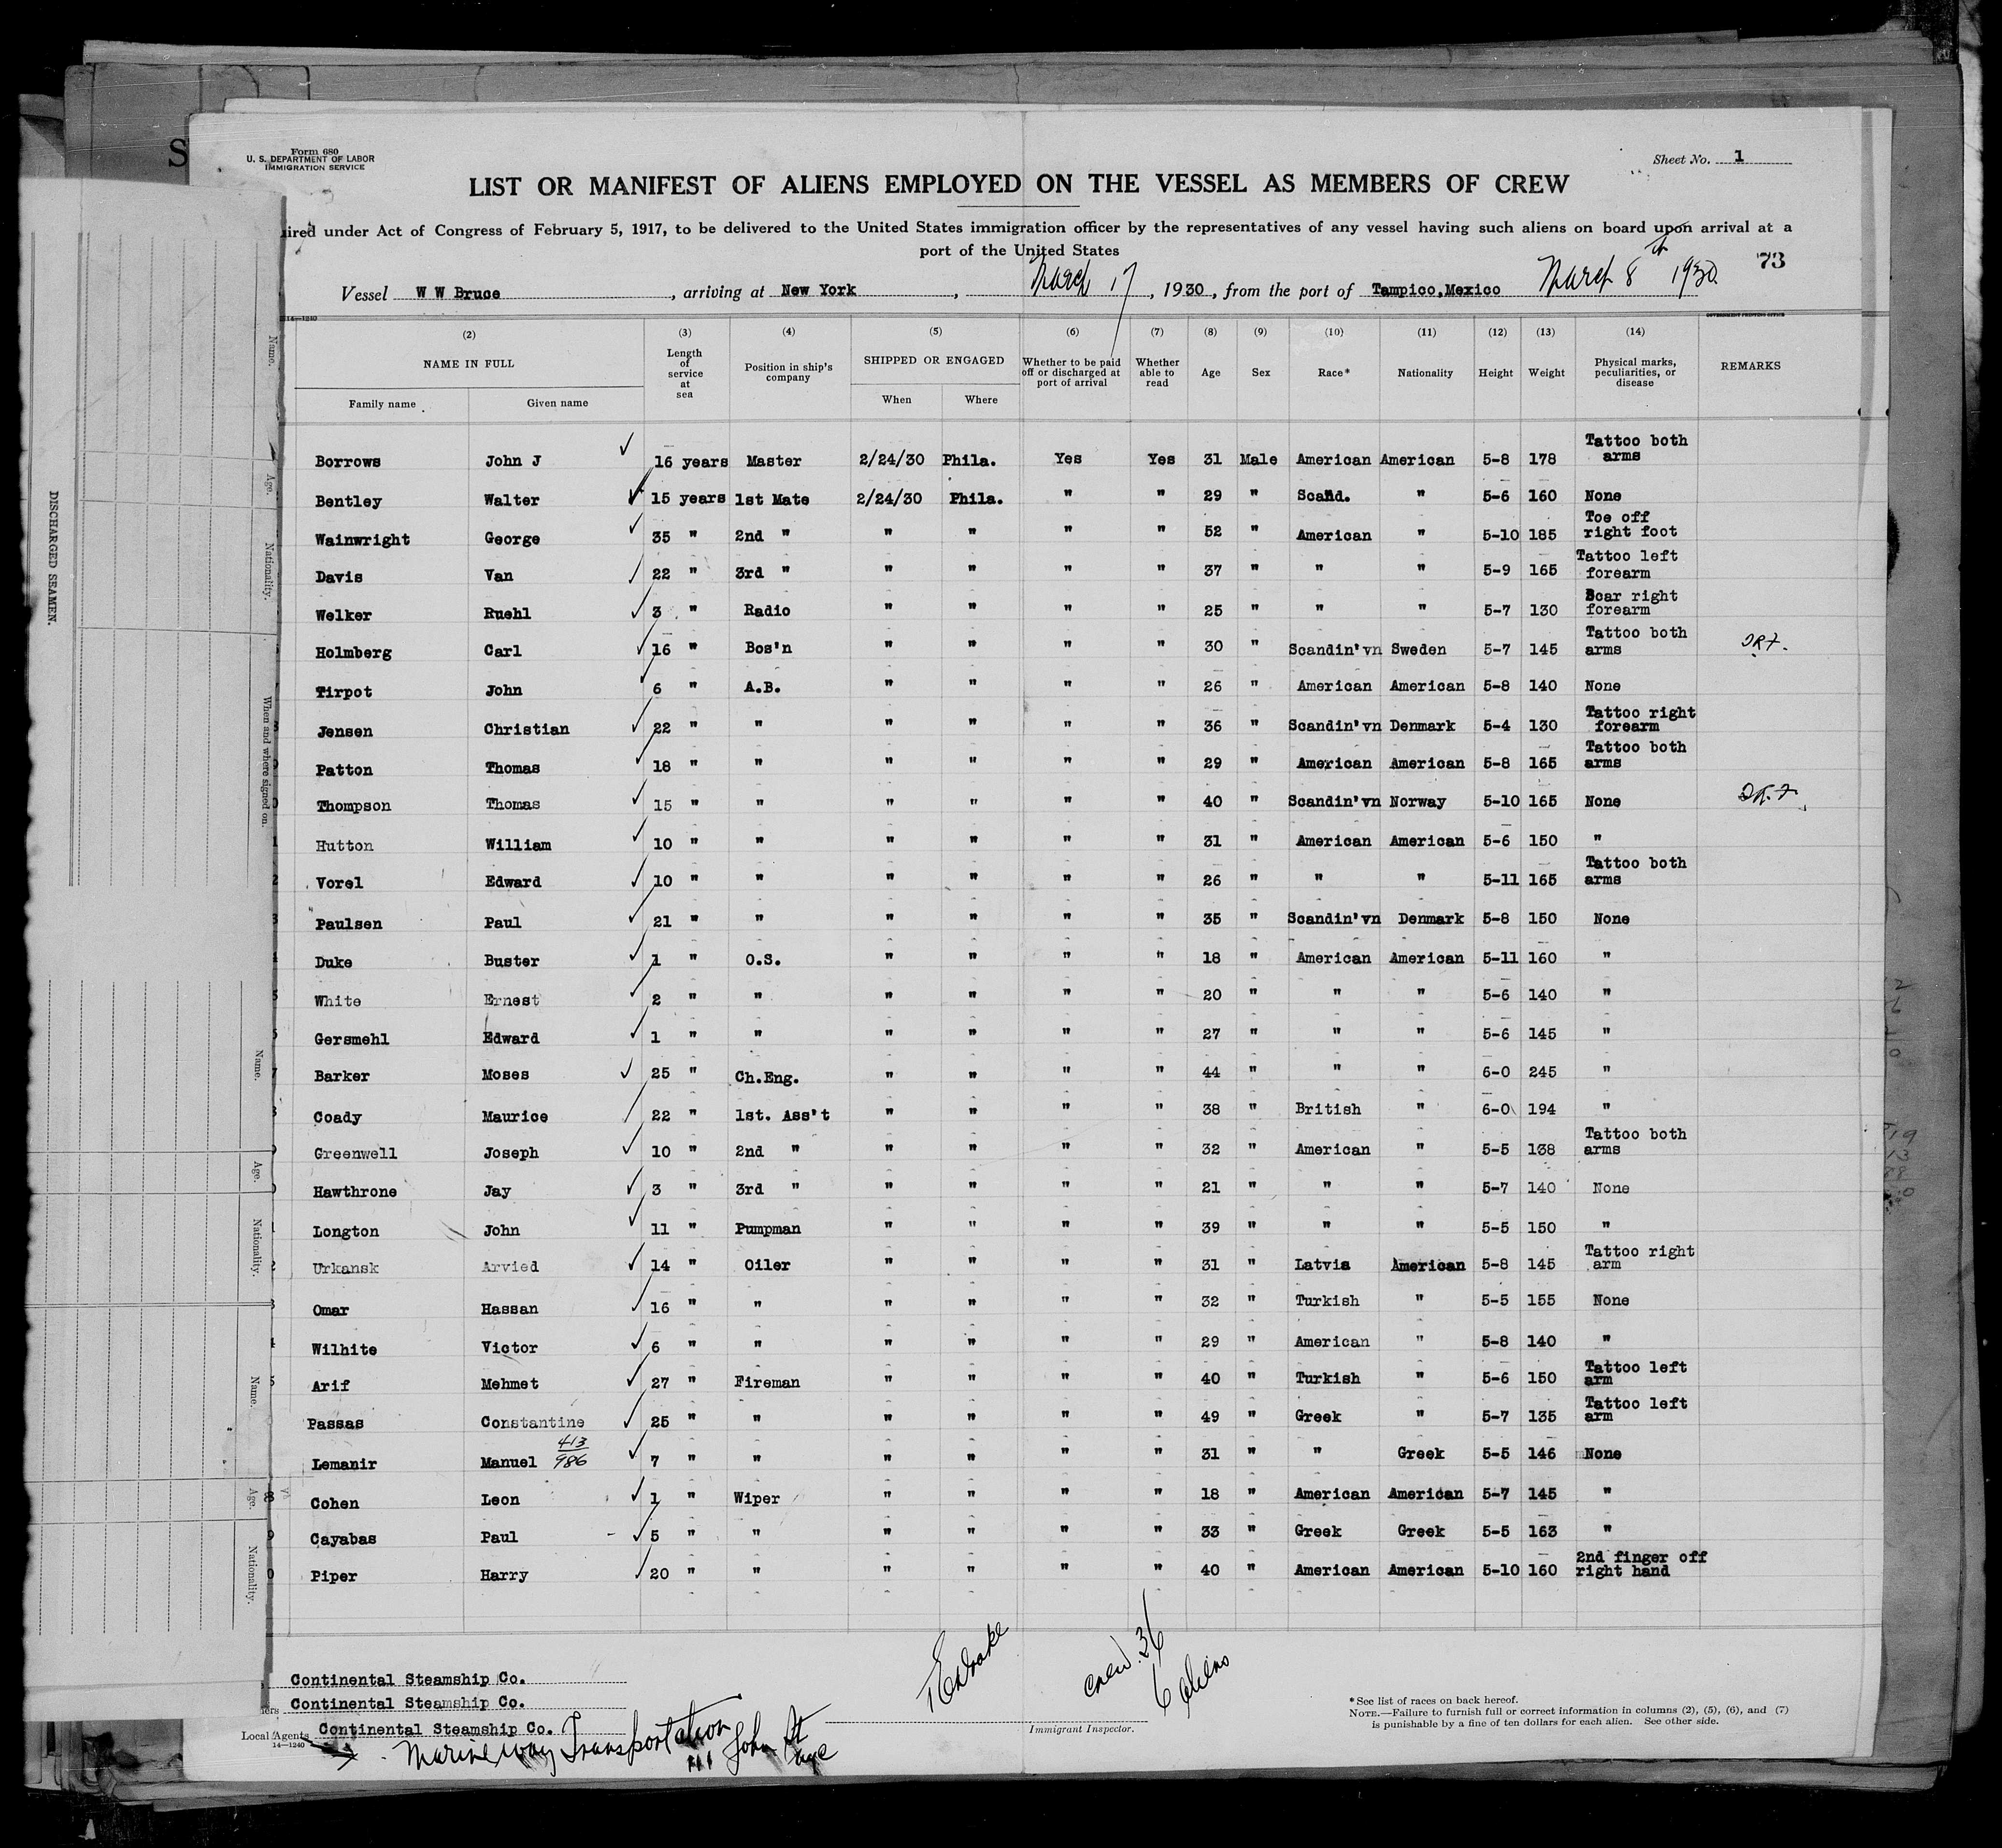 Form 680
U. S. DEPARTMENT OF LABOR
IMMIGRATION SERVICE
Sheet No. 1
LIST OR MANIFEST OF ALIENS EMPLOYED ON THE VESSEL AS MEMBERS OF CREW
ired under Act of Congress of February 5, 1917, to be delivered to the United States immigration officer by the representatives of any vessel having such aliens on board upon arrival at a
port of the United States
73
Vessel W W Bruce, arriving at New York, March 17, 1930, from the port of Tampico,Mexico March 8th 1930
14—1240 GOVERNMENT PRINTING OFFICE
(2) (3) (4) (5) (6) (7) (8) (9) (10) (11) (12) (13) (14)
NAME IN FULL Length of service at sea Position in ship's company SHIPPED OR ENGAGED Whether to be paid off or discharged at port of arrival Whether able to read Age Sex Race* Nationality Height Weight Physical marks, peculiarities, or disease REMARKS
Family name Given name When Where
Borrows John J ✓ 16 years Master 2/24/30 Phila. Yes Yes 31 Male American American 5-8 178 Tattoo both arms
Bentley Walter ✓ 15 years 1st Mate 2/24/30 Phila. " " 29 " Scand. " 5-6 160 None
Wainwright George ✓ 35 " 2nd " " " " " 52 " American " 5-10 185 Toe off right foot
Davis Van ✓ 22 " 3rd " " " " " 37 " " " 5-9 165 Tattoo left forearm
Welker Ruehl ✓ 3 " Radio " " " " 25 " " " 5-7 130 Scar right forearm
Holmberg Carl ✓ 16 " Bos'n " " " " 30 " Scandin'vn Sweden 5-7 145 Tattoo both arms
Tirpot John ✓ 6 " A.B. " " " " 26 " American American 5-8 140 None
Jensen Christian ✓ 22 " " " " " " 36 " Scandin'vn Denmark 5-4 130 Tattoo right forearm
Patton Thomas ✓ 18 " " " " " " 29 " American American 5-8 165 Tattoo both arms
Thompson Thomas ✓ 15 " " " " " " 40 " Scandin'vn Norway 5-10 165 None
Hutton William ✓ 10 " " " " " " 31 " American American 5-6 150 "
Vorel Edward ✓ 10 " " " " " " 26 " " " 5-11 165 Tattoo both arms
Paulsen Paul ✓ 21 " " " " " " 35 " Scandin'vn Denmark 5-8 150 None
Duke Buster ✓ 1 " O.S. " " " " 18 " American American 5-11 160 "
White Ernest ✓ 2 " " " " " " 20 " " " 5-6 140 "
Gersmehl Edward ✓ 1 " " " " " " 27 " " " 5-6 145 "
Barker Moses ✓ 25 " Ch.Eng. " " " " 44 " " " 6-0 245 "
Coady Maurice / 22 " 1st. Ass't " " " " 38 " British " 6-0 194 "
Greenwell Joseph ✓ 10 " 2nd " " " " " 32 " American " 5-5 138 Tattoo both arms
Hawthrone Jay ✓ 3 " 3rd " " " " " 21 " " " 5-7 140 None
Longton John ✓ 11 " Pumpman " " " " 39 " " " 5-5 150 "
Urkansk Arvied ✓ 14 " Oiler " " " " 31 " Latvia American 5-8 145 Tattoo right arm
Omar Hassan ✓ 16 " " " " " " 32 " Turkish " 5-5 155 None
Wilhite Victor ✓ 6 " " " " " " 29 " American " 5-8 140 "
Arif Mehmet ✓ 27 " Fireman " " " " 40 " Turkish " 5-6 150 Tattoo left arm
Passas Constantine ✓ 25 " " " " " " 49 " Greek " 5-7 135 Tattoo left arm
Lemanir Manuel 413 986 ✓ 7 " " " " " " 31 " " Greek 5-5 146 None
Cohen Leon ✓ 1 " Wiper " " " " 18 " American American 5-7 145 "
Cayabas Paul ✓ 5 " " " " " " 33 " Greek Greek 5-5 163 "
Piper Harry ✓ 20 " " " " " " 40 " American American 5-10 160 2nd finger off right hand
Continental Steamship Co.
Continental Steamship Co.
Local Agents Continental Steamship Co.
14—1240
Marineway Transportation
111 John St
nyc
crew. 36
6 aliens
Immigrant Inspector.
* See list of races on back hereof.
NOTE.—Failure to furnish full or correct information in columns (2), (5), (6), and (7)
is punishable by a fine of ten dollars for each alien. See other side.
DISCHARGED SEAMEN.
Name.
Age.
Nationality.
When and where signed on.
Name.
Age.
Nationality.
Name.
Age.
Nationality.